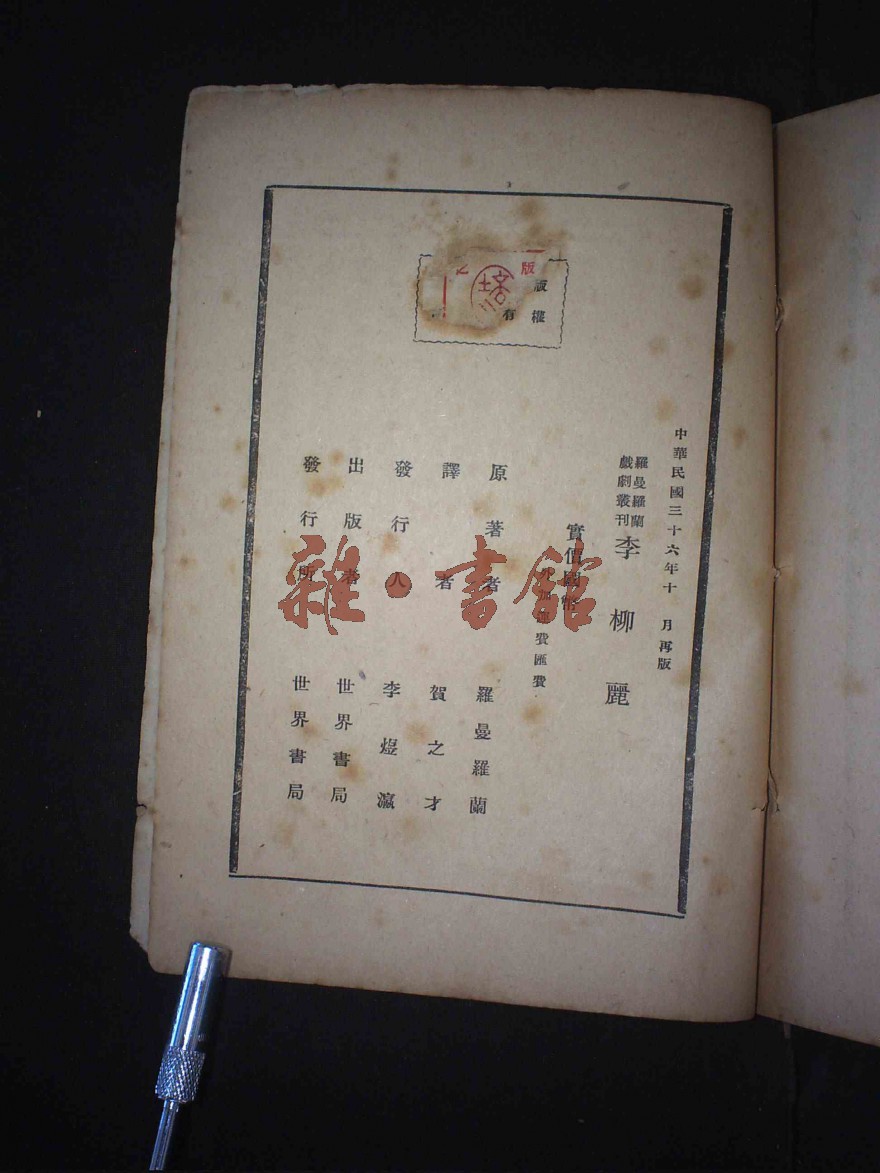 中華民國三十六年十月再版
羅曼羅蘭
戲劇叢刊
李柳麗
實價國幣
外加運費匯費
原著者 羅曼羅蘭
譯者 賀之才
發行人 李煜瀛
出版者 世界書局
發行所 世界書局
版權
有
版
雜·書館